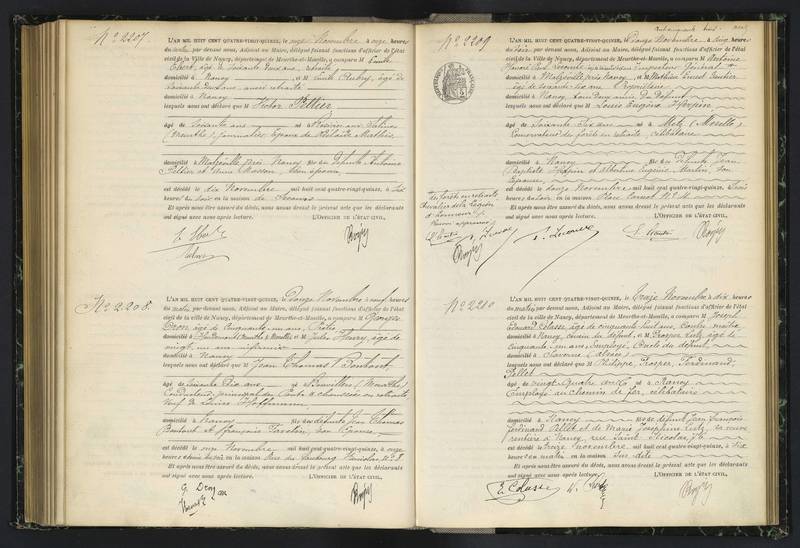 No 2207.
L'AN MIL HUIT CENT QUATRE-VINGT-QUINZE, le onze Novembre à onze heures
du matin, par devant nous, Adjoint au Maire, délégué faisant fonctions d'officier de l'état
civil de la Ville de Nancy, département de Meurthe-et-Moselle, a comparu M Emile
âgé de soixante deux ans, retraité
domicilié à Nancy et M Emile Aubry, âgé de
soixante deux ans, aussi retraité
domicilié à Nancy
lesquels nous ont déclaré que M Victor Peltier
âgé de soixante ans né à
(Meurthe), Journalier, Epoux de Adélaïde Mathis
domicilié à Malzéville près Nancy fils de défunts Antoine
Peltier et Anne Masson, son épouse
est décédé le dix Novembre mil huit cent quatre-vingt-quinze, à six
heures du soir en la maison de Secours
Et après nous être assuré du décès, nous avons dressé le présent acte que les déclarants
ont signé avec nous après lecture. L'OFFICIER DE L'ÉTAT CIVIL,
No 2208.
L'AN MIL HUIT CENT QUATRE-VINGT-QUINZE, le douze Novembre à neuf heures
du matin, par devant nous, Adjoint au Maire, délégué faisant fonctions d'officier de l'état
civil de la ville de Nancy, département de Meurthe-et-Moselle, a comparu M Georges
Dron, âgé de cinquante un ans,
domicilié à (Meurthe & Moselle) et M Jules Henry, âgé de
vingt un ans, infirmier
domicilié à Nancy
lesquels nous ont déclaré que M Jean Thomas Bontout
âgé de soixante dix ans né à (Meurthe)
Conducteur principal des Ponts & chaussées en retraite,
veuf de Louise Hoffmann
domicilié à Nancy fils de défunts Jean Thomas
Bontout et Françoise son Epouse
est décédé le onze Novembre mil huit cent quatre-vingt-quinze, à onze
heures en la maison Rue du Faubourg Stanislas No 8
Et après nous être assuré du décès, nous avons dressé le présent acte que les déclarants
ont signé avec nous après lecture. L'OFFICIER DE L'ÉTAT CIVIL,
G. Dron
No 2209
L'AN MIL HUIT CENT QUATRE-VINGT-QUINZE, le douze Novembre, à cinq heures
du soir, par devant nous, Adjoint au Maire, délégué faisant fonctions d'officier de l'état
civil de la Ville de Nancy, département de Meurthe-et-Moselle, a comparu M Antoine
domicilié à Malzéville, près Nancy et M Mathieu
âgé de soixante six ans, Propriétaire
domicilié à Nancy, tous deux amis du Défunt
lesquels nous ont déclaré que M Louis Eugène
âgé de soixante dix ans né à Metz (Moselle)
Conservateur des forêts en retraite, célibataire
domicilié à Nancy fils de défunts Jean
Baptiste et Albertine Eugénie Martin, son
Epouse
est décédé le douze Novembre, mil huit cent quatre-vingt-quinze, à trois
heures du soir en la maison Place Carnot
Et après nous être assuré du décès, nous avons dressé le présent acte que les déclarants
ont signé avec nous après lecture. L'OFFICIER DE L'ÉTAT CIVIL,
des forêts en retraite
Chevalier de la Légion
d'honneur
No 2210
L'AN MIL HUIT CENT QUATRE-VINGT-QUINZE, le treize Novembre, à dix heures
du matin, par devant nous, Adjoint au Maire, délégué faisant fonctions d'officier de l'état
civil de la ville de Nancy, département de Meurthe-et-Moselle, a comparu M Joseph
Edouard Colasse, âgé de cinquante huit ans, Contre maître
domicilié à Nancy, cousin du défunt, et M Prosper Lutz, âgé de
cinquante ans, Employé, Oncle du défunt,
domicilié à Saverne (Alsace)
lesquels nous ont déclaré que M Philippe, Prosper, Ferdinand,
Pellet
âgé de vingt quatre ans né à Nancy
Employé au chemin de fer, célibataire
domicilié à Nancy fils de défunt Jean François
Ferdinand Pellet et de Marie Joséphine Lutz, sa veuve
rentière à Nancy, rue Saint Nicolas, 76
est décédé le treize Novembre mil huit cent quatre-vingt-quinze, à six
heures du matin en la maison sus dite
Et après nous être assuré du décès, nous avons dressé le présent acte que les déclarants
ont signé avec nous après lecture. L'OFFICIER DE L'ÉTAT CIVIL,
E. Colasse